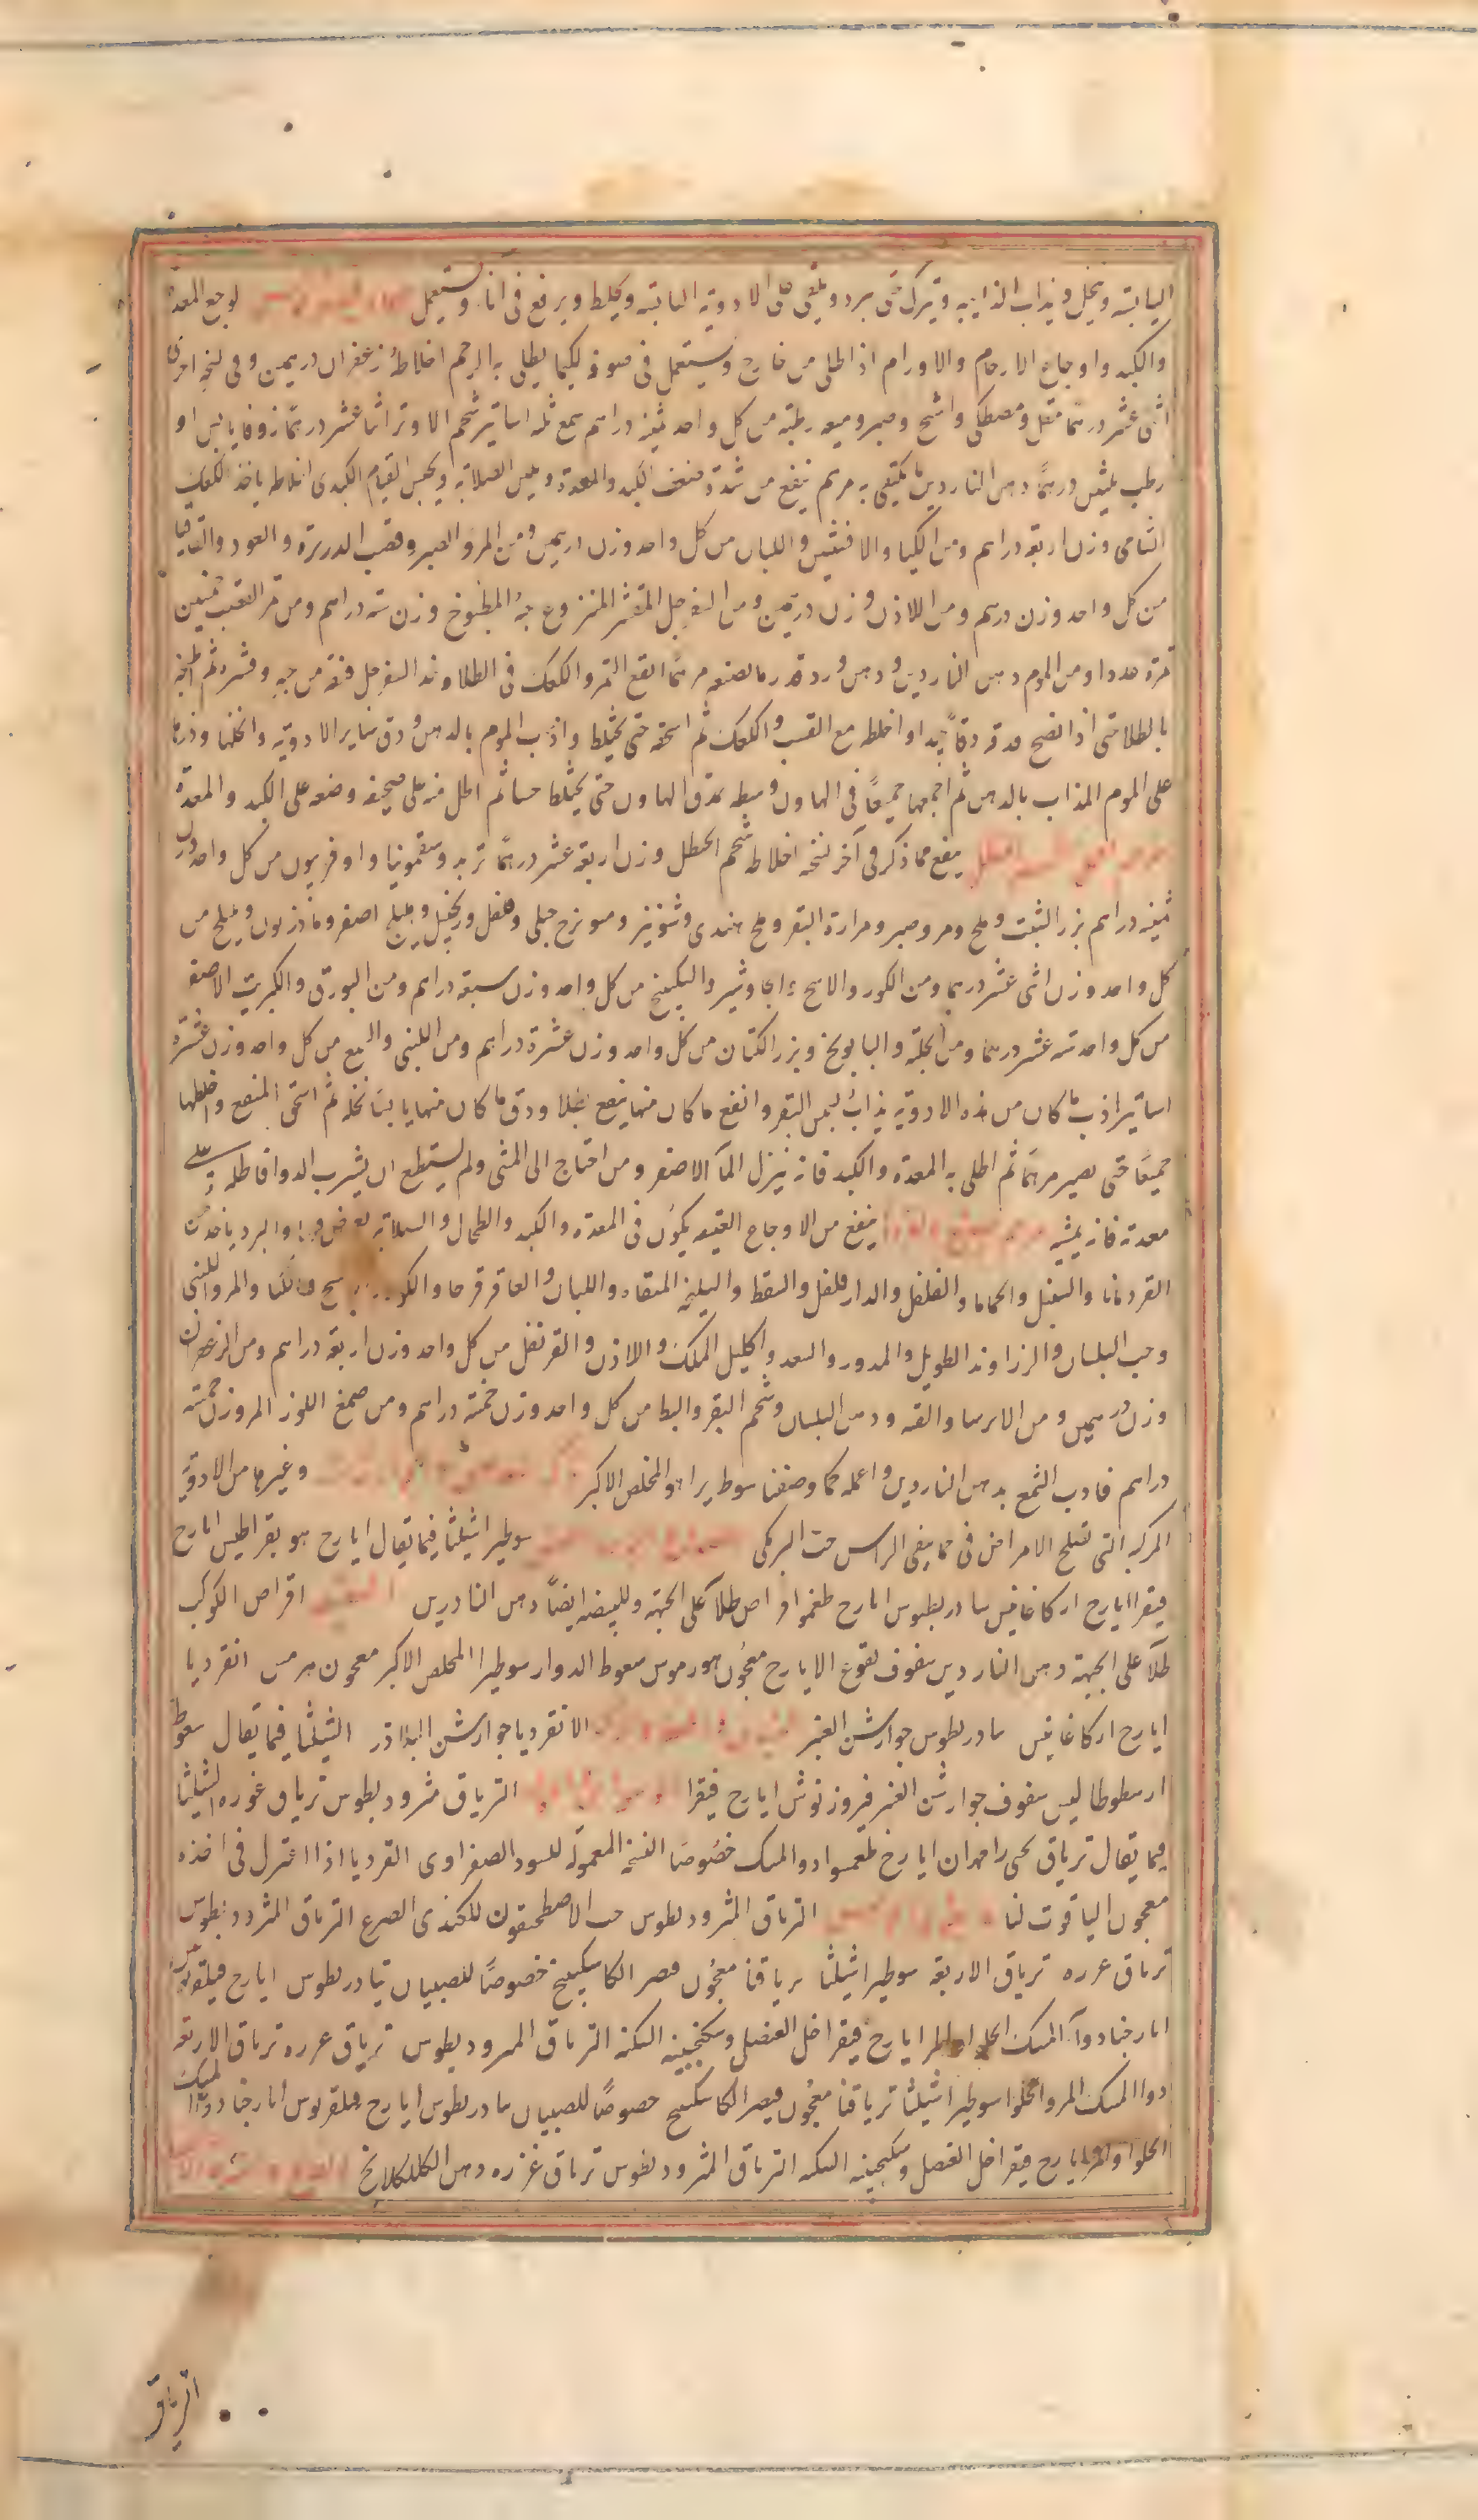 اليابسة وينخل ويذاب الذايبه ويترك حتى يبرد ويلقى على الادوية اليابسة ويخلط ويرفع فى انا ويستعمل لوجع المعدة
والكبد واوجاع الارحام والاورام اذا طلى من خارج ويستعمل فى صوفة ليكما يطلى به الرحم اخلاطه زعفران درهمين وفى نسخة اخرى
اثنى عشر درهما مقل ومصطكى واشج وصبر وميعه رطبة من كل واحد ثمنيه دراهم شمع ثلثه اساتير شحم الاوز اثنا عشر درهما زوفا يابس او
رطب ثلثين درهمًا دهن الناردين ما يكتفى به مرهم ينفع من شدة ضعف الكبد والمعدة ويلين الصلابة ويحبس القيام الكبدى اخلاطه ياخذ الكعك
الشامى وزن اربعة دراهم ومن الكيا والافسنتين واللبان من كل واحد وزن درهمين ومن المر والصبر وقصب الذريرة والعود والقاقيا
من كل واحد وزن درهم ومن اللاذن وزن درهمين ومن السفرجل المقشر المنزوع حبه المطبوخ وزن سته دراهم ومن تمر القسب خمسين
تمرة عددا ومن الموم ودهن الناردين ودهن ورد قدر ما يصنعه مرهمًا انقع التمر والكعك فى الطلا وخذ السفرجل فنقه من حبه وقشره ثم اطبخه
بالطلا حتى اذا نضج فدقه دقًا جيدا واخلطه مع القسب والكعك ثم اسحقه حتى يختلط واذب الموم بالدهن ودق ساير الادوية وانخلها وذرها
على الموم المذاب بالدهن ثم اجمعها جميعًا فى الهاون وسطه بدق الهاون حتى يختلط حسنا ثم اطل منه على صحيفه وضعه على الكبد والمعدة
ينفع مما ذكر فى آخر نسخه اخلاطه شحم الحنظل وزن اربعة عشر درهمًا تربد وسقمونيا واوفربيون من كل واحد وزن
ثمنيه دراهم بزر الشبت وملح ومر وصبر ومرارة البقر وملح هندى وشونيز وميويزج جبلى وفلفل وزنجبيل وهليلج اصفر وماذريون وبليلج من
كل واحد وزن اثنى عشر درهما ومن الكور والاشج والجاوشير والسكبينج من كل واحد وزن سبعة دراهم ومن البورق والكبريت الاصفر
من كل واحد سته عشر درهما ومن الحلبة والبابونج وبزر الكتان من كل واحد وزن عشرة دراهم ومن اللبنى والشمع من كل واحد وزن عشرة
اساتير اذب ما كان من هذه الادوية يذاب بسمن البقر وانقع ما كان منها ينقع بخل ودق ما كان منها يابسًا وانخله ثم اسحق المنقع واخلطها
جميعًا حتى يصير مرهمًا ثم اطلى به المعدة والكبد فانه ينزل المآ الاصفر ومن احتاج الى المشى ولم يستطع ان يشرب الدوا فاطله على
معدته فانه يمشيه ينفع من الاوجاع العتيقه يكون فى المعدة والكبد والطحال والصلابة والبرد ياخذ من
القردمانا والسنبل والحماما والفلفل والدارفلفل والقسط والسليخه المنقاه واللبان والعاقرقرحا والمر واللبنى
وحب البلسان والزراوند الطويل والمدور والسعد واكليل الملك واللاذن والقرنفل من كل واحد وزن اربعة دراهم ومن الزعفران
وزن درهمين ومن الايرسا والقنه ودهن البلسان وشحم البقر والبط من كل واحد وزن خمسة دراهم ومن صمغ اللوز المر وزن خمسة
دراهم فاذب الشمع بدهن الناردين واعمله كما وصفنا سوطيرا هو المخلص الاكبر وغيرها من الادوية
المركبة التى تصلح الامراض فى ما ينقى الراس حب البرمكى سوطيرا شيلثا فيما يقال ايارج هو بقراطيس ايارج
فيقرا ايارج اركاغانيس تيادريطوس ايارج طلآ على الجبهة وللبيضه ايضًا دهن الناردين اقراص الكوكب
طلآ على الجبهة دهن الناردين سفوف نقوع الايارج معجون هورموس سعوط الدوار سوطيرا المخلص الاكبر معجون هرمس انقرديا
ايارج اركاغانيس تيادريطوس جوارشن العنبر الانقرديا جوارشن البلاذر الشيلثا فيما يقال سعوط
ارسطوطاليس سفوف جوارشن العنبر فيروزنوش ايارج فيقرا الترياق مثروديطوس ترياق عزره الشيلثا
فيما يقال ترياق ايارج دوا المسك خصوصًا النسخة المعمولة للسودا الصفراوى انقرديا اذا اعتزل فى اخذه
معجون الياقوت لنا الترياق المثروديطوس حب الاصطمحيقون للكندى الصرع الترياق المثروديطوس
ترياق عزره ترياق الاربعة سوطيرا شيلثا ترياقنا معجون قيصر الكاسكبينج خصوصًا للصبيان تيادريطوس ايارج
دوآ المسك الحلو ايارج فيقرا خل العنصل وسكنجبينه السكتة الترياق المثروديطوس ترياق عزره ترياق الاربعة
دوا المسك المر والحلو سوطيرا شيلثا ترياقنا معجون قيصر الكاسكبينج خصوصًا للصبيان تيادريطوس ايارج دوآ المسك
الحلو والمر ايارج فيقرا خل العنصل وسكنجبينه السكته الترياق المثروديطوس ترياق عزره دهن الكلكلانج
الترياق